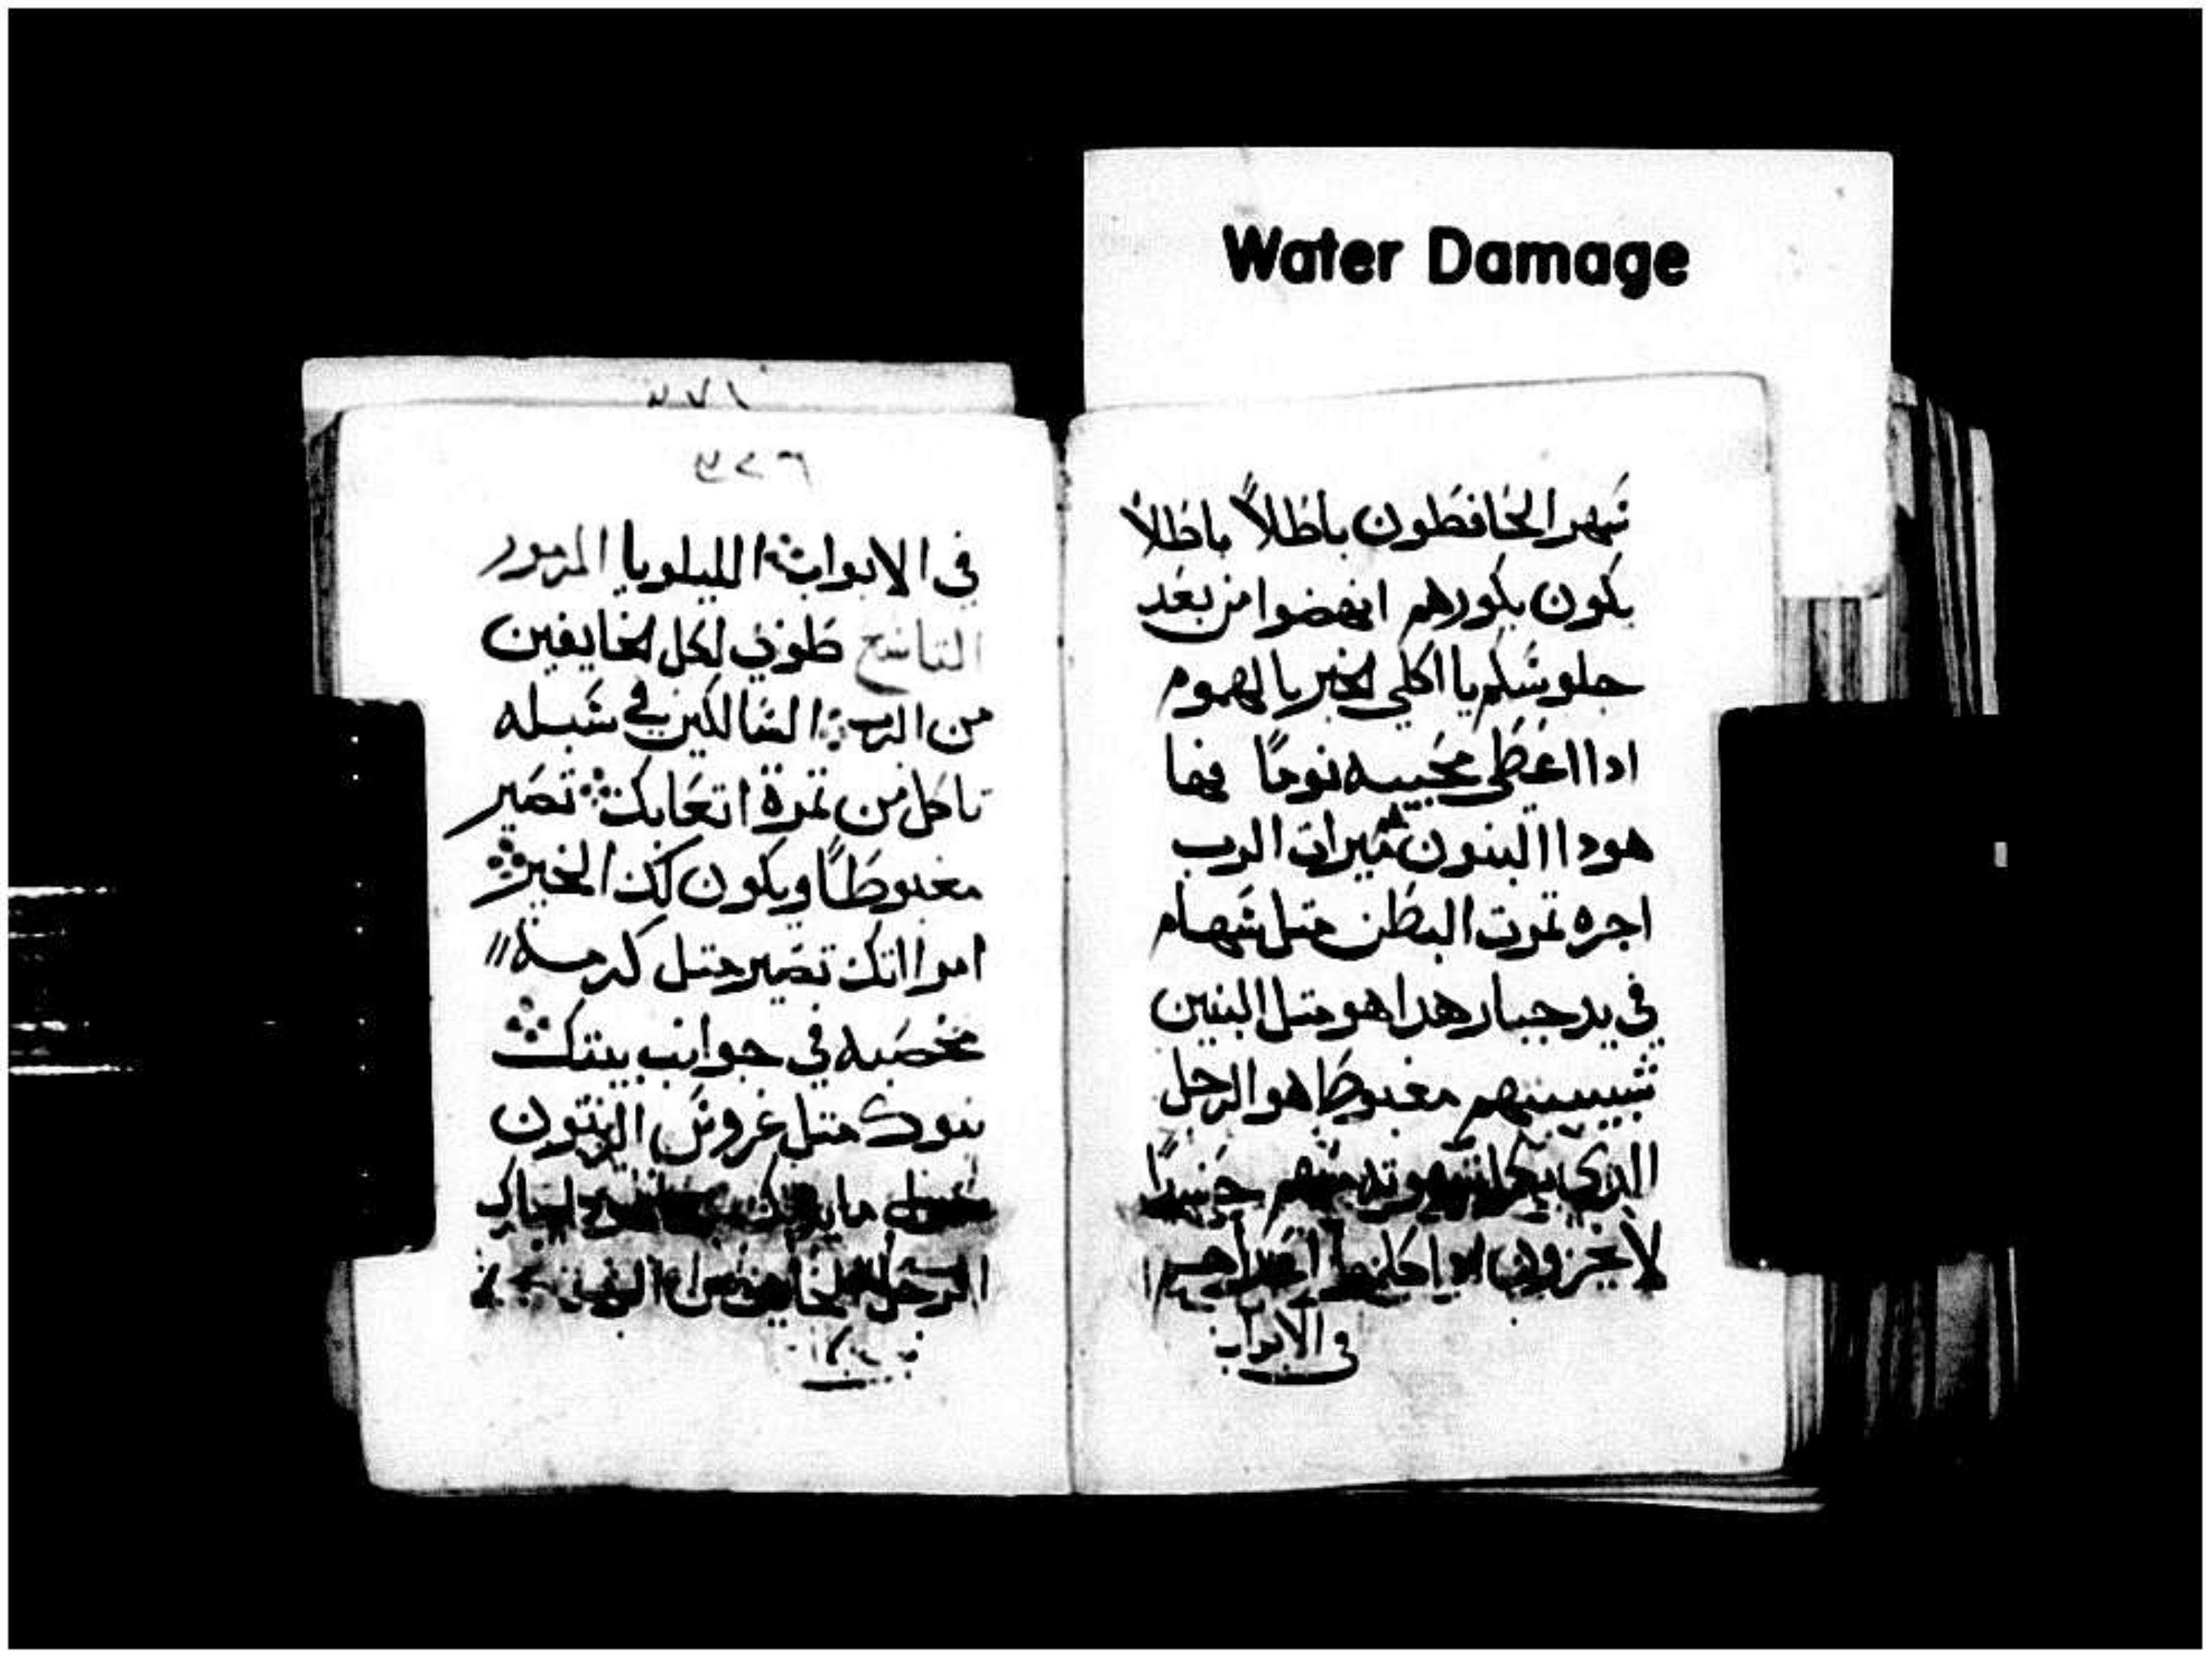 Water Damage
سهر الحافظون باطلاً باطلاً
يكون بكورهم انهضوا من بعد
جلوسكم يا اكلي الخبز بالهموم
ادا اعطي محبيه نومًا فها
هودا البنون ميرات الرب
اجره تمرت البطن متل سهام
في يد جبار هدا هو متل البنين
شبيبتهم مغبوطًا هو الرجل
الدي شهوته منهم حنيدًا
لا يخزون ادا كلموا
في الابواب
٢٧١
في الابواب الليلويا المزمور
التاسع طوبي لكل الخايفين
من الرب السالكين في سبله
تاكل من تمرة اتعابك تصير
مغبوطًا ويكون لك الخير
امراتك تصير متل كرمه
مخصبه في جوانب بيتك
بنوك متل غروس الزيتون
الرجل الخايف من الرب